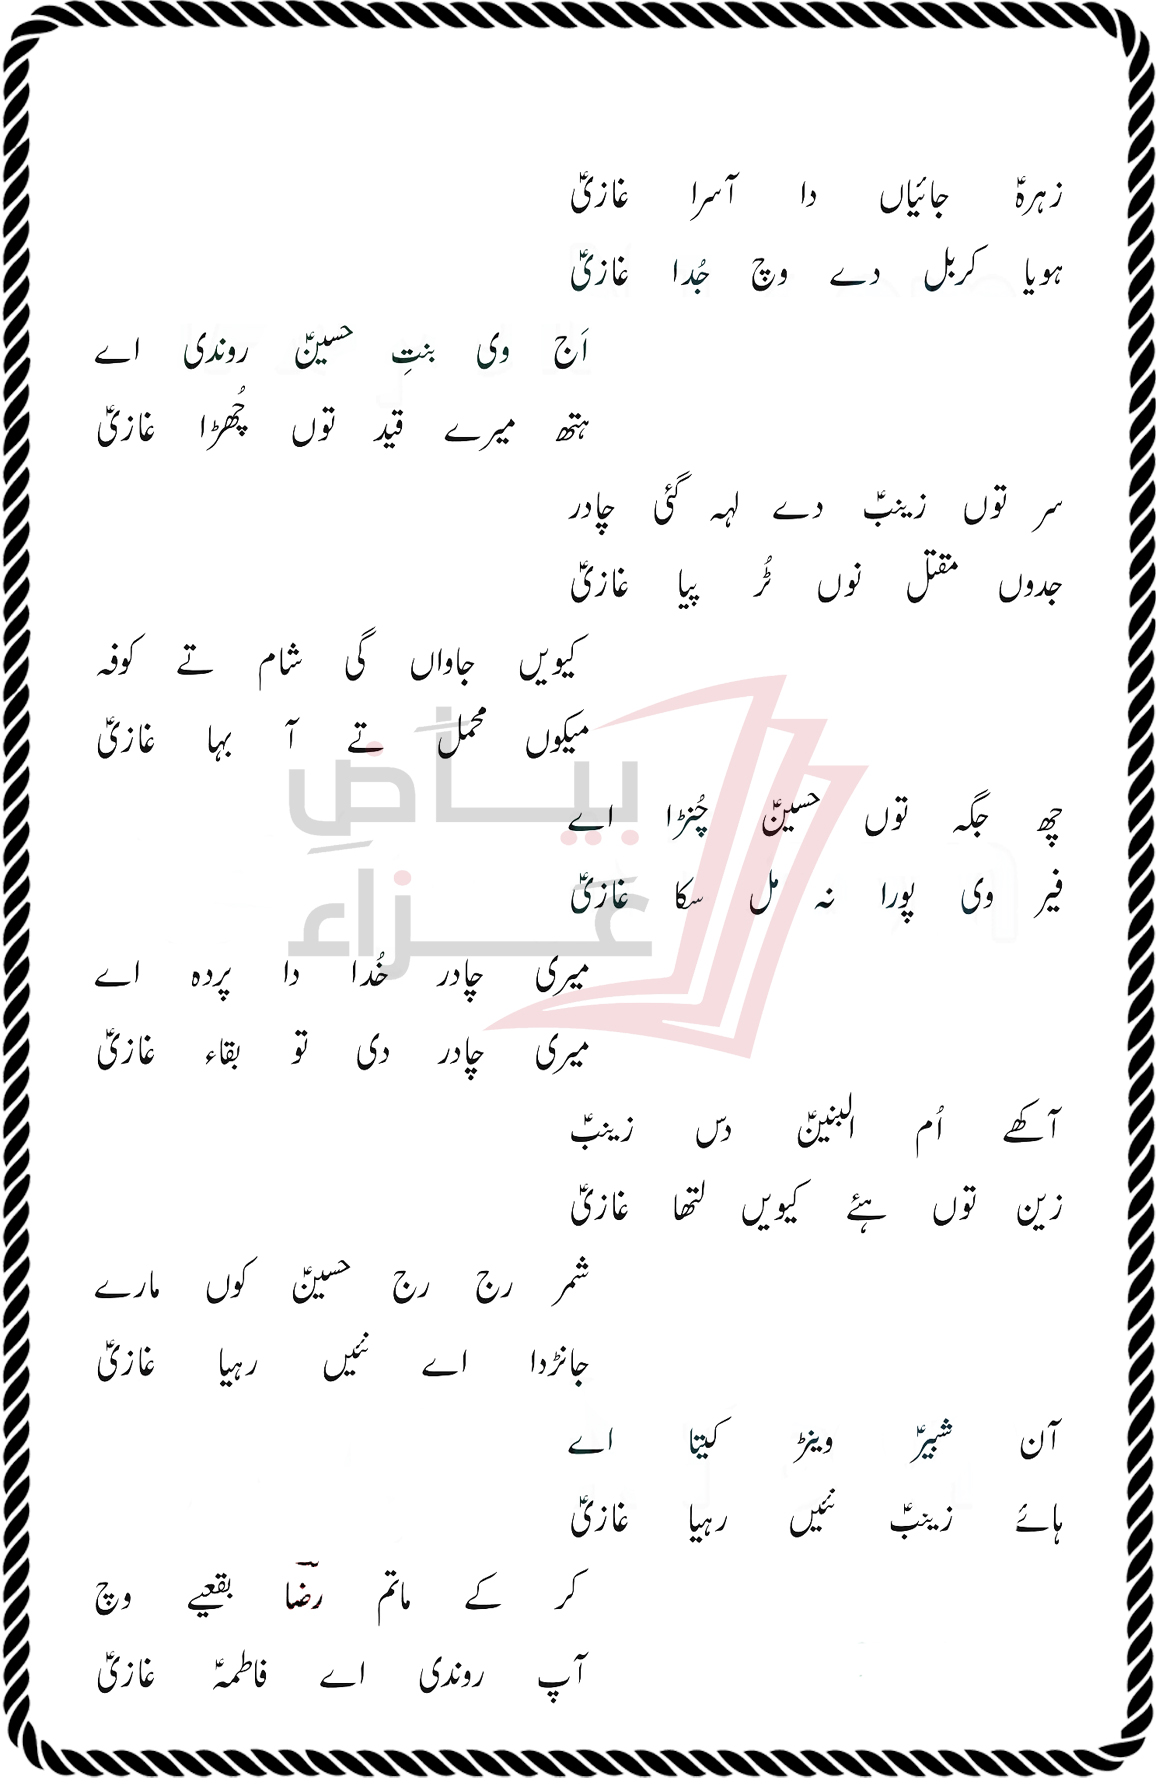 زہرہؑ جائیاں دا آسرا غازیؑ
ہویا کربل دے وچ جُدا غازیؑ
اَج وی بنتِ حسینؑ روندی اے
ہتھ میرے قید توں چُھڑا غازیؑ
سر توں زینبؑ دے لہہ گئی چادر
جدوں مقتل نوں ٹُر پیا غازیؑ
کیویں جاواں گی شام تے کوفہ
میکوں محمل تے آ بہا غازیؑ
چھ جگہ توں حسینؑ چُنڑا اے
فیر وی پورا نہ مل سکا غازیؑ
بیاضِ
عزاء
میری چادر خُدا دا پردہ اے
میری چادر دی تو بقاء غازیؑ
آکھے اُم البنینؑ دس زینبؑ
زین توں ہئے کیویں لتھا غازیؑ
شمر رج رج حسینؑ کوں مارے
جانڑدا اے نئیں رہیا غازیؑ
آن شبیرؑ وینڑ کیتا اے
ہائے زینبؑ نئیں رہیا غازیؑ
کر کے ماتم رضؔا بقعیے وچ
آپ روندی اے فاطمہؑ غازیؑ